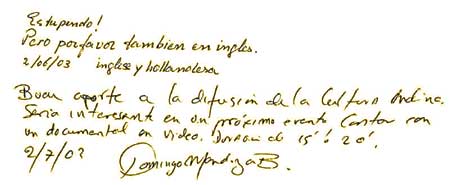 Estupendo!
Pero porfavor tambien en ingles.
2/06/03 inglesa y hollandesa
Buen aporte a la difusión de la Cultura Andina.
Seria interesante en un próximo evento Contar con
un documental en video. Duración de 15' ó 20'.
2/7/03 Domingo Mendoza B.